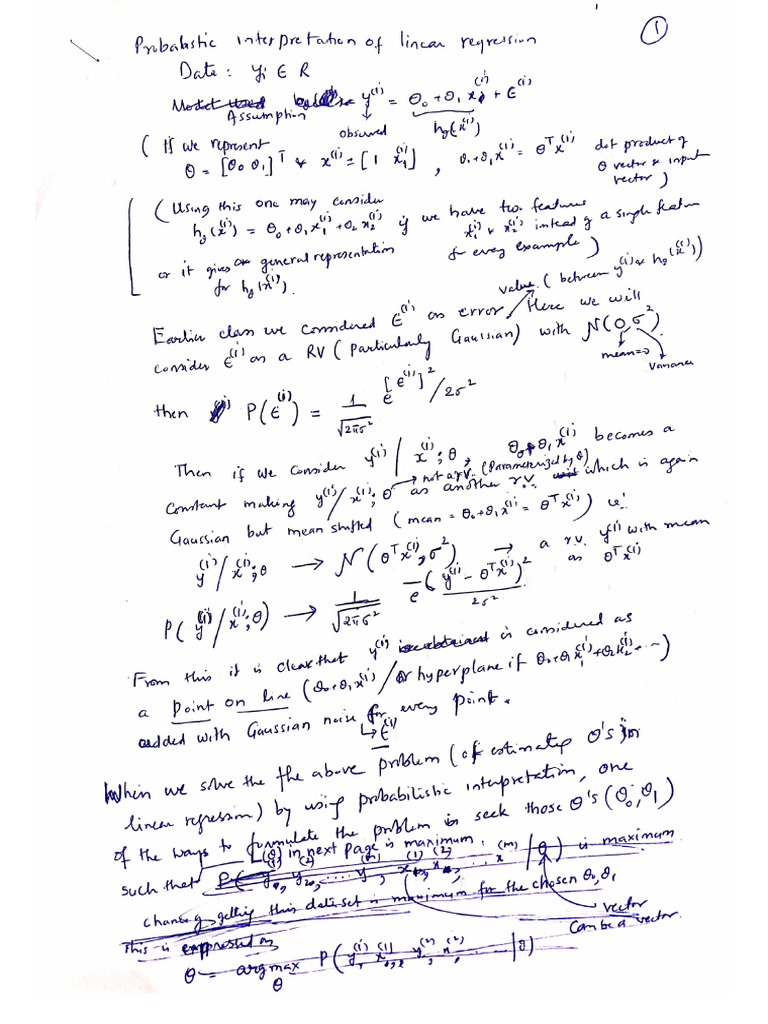 ①
Probabilistic interpretation of linear regression
Data : yi ∈ R
Assumption y^(i) = θ₀ + θ₁ x^(i) + ε^(i)
observed h_θ(x^(i))
( If we represent
θ = [θ₀ θ₁]^T & x^(i) = [1 x₁^(i)] , θ₀+θ₁x^(i) = θ^T x^(i) dot product of θ vector & input vector )
( Using this one may consider
h_θ(x^(i)) = θ₀ + θ₁x₁^(i) + θ₂x₂^(i) if we have two features
x₁^(i) & x₂^(i) instead of a single feature
for every example )
or it gives general representation
for h_θ(x^(i)).
Earlier class we considered ε^(i) as error value (between y^(i) & h_θ(x^(i)))
Here we will
consider ε^(i) as a RV (Particularly Gaussian) with N(0, σ²)
mean=0 Variance
then P(ε^(i)) = 1/√(2πσ²) e^([ε^(i)]²/2σ²)
Then if we consider y^(i) | x^(i); θ, θ₀+θ₁x^(i) becomes a
not a r.v. (Parameterized by θ)
constant making y^(i)/x^(i); θ as another r.v. which is again
Gaussian but mean shifted (mean = θ₀+θ₁x^(i) = θ^T x^(i)) ie'
y^(i)/x^(i);θ → N(θ^T x^(i), σ²) → a r.v. y^(i) with mean as θ^T x^(i)
P(y^(i)/x^(i);θ) → 1/√(2πσ²) e^(-(y^(i) - θ^T x^(i))²/2σ²)
From this it is clear that y^(i) is considered as
a point on line (θ₀+θ₁x^(i) / Or hyperplane if θ₀+θ₁x₁^(i)+θ₂x₂^(i)+--)
added with Gaussian noise for every point.
ε^(i)
When we solve the the above problem (of estimating θ's in
linear regression) by using probabilistic interpretation, one
of the ways to formulate the problem is seek those θ's (θ₀, θ₁)
(θ) in next page is maximum.
such that P( y^(1), y^(2), .... y^(m), x^(1), x^(2), .... x^(m) | θ) is maximum
chance of getting this dataset is maximum for the chosen θ₀, θ₁
vector
Can be a vector.
This is expressed as
θ = argmax θ P( y^(1), x^(1), y^(2), x^(2), | θ)